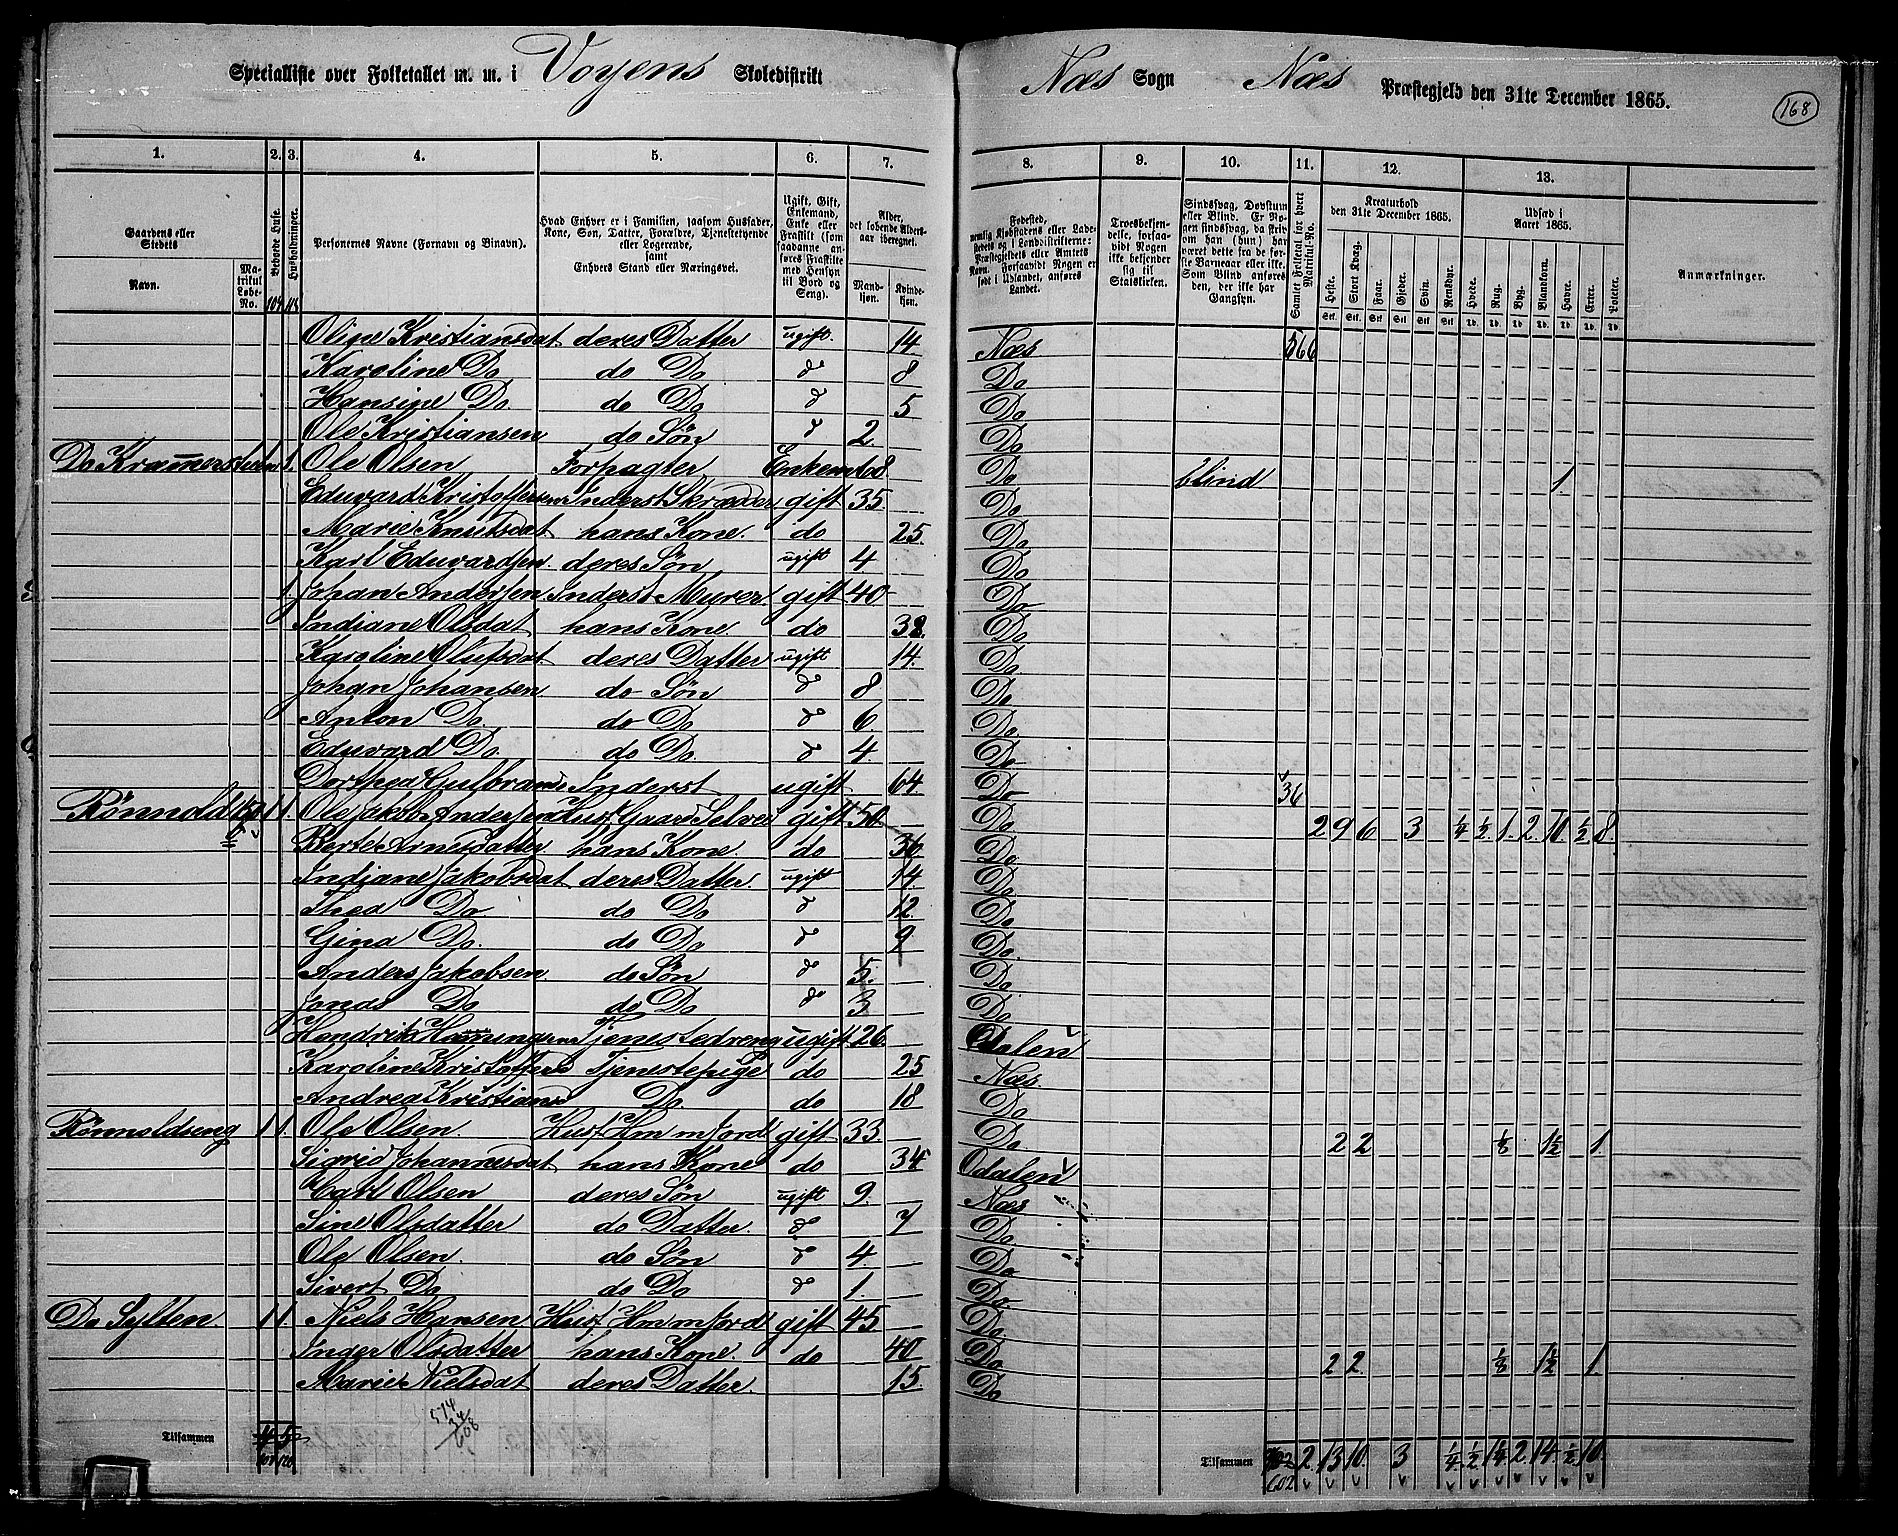 Specialliste over Folketallet m. m. i Voyens Skoledistrikt
Næs Sogn Næs Præstegjeld den 31te December 1865.
168
1. 2. 3. 4. 5. 6. 7. 8. 9. 10. 11. 12. 13.
Gaardens eller Stedets
Navn.
Matrikul Løbe-No.
Beboede Huse.
Husholdninger.
Personernes Navne (Fornavn og Binavn).
Hvad Enhver er i Familien, saasom Husfader, Kone, Søn, Datter, Forældre, Tjenestetyende eller Logerende, samt Enhvers Stand eller Næringsvei.
Ugift, Gift, Enkemand, Enke eller Fraskilt (saadanne anføres Fraskilte med Hensyn til Bord og Seng).
Alder, det løbende Aldersaar iberegnet.
Mandkjøn. Kvindekjøn.
Fødested,
Troesbekjendelse, forsaavidt Nogen ikke bekjender sig til Statskirken.
Sindssvag, Døvstum eller Blind.
Samlet Folketal for hvert Matrikul-No.
Kreaturhold den 31te December 1865.
Heste. Stort Kvæg. Faar. Gjeder. Svin. Rensdyr.
Udsæd i Aaret 1865.
Hvede. Rug. Byg. Blandkorn. Havre. Erter. Poteter.
Anmærkninger.
Oline Kristiansdat deres Datter ugift. 14 Næs 566
Karoline Do do Do d 8 Do
Hansine Do. do Do d 5 Do
Ole Kristiansen do Søn d 2 Do
Do Kræmmers 1. Ole Olsen Forpagter Enkem 68 Do blind 1
Eduvard Kristoffersen Inderst Skræder gift 35. Do
Marie Knutsdat hans Kone. do 25. Do
Karl Eduvardsen. deres Søn ugift 4 Do
1 Johan Andersen Inderst Myrer. gift 40 Do
Indiane Olsdat hans Kone. do 38. Do
Karoline Olufsdat deres Datter ugift 14. Do
Johan Johansen do Søn d 8 Do
Anton Do. do Do d 6 Do
Eduvard Do. do Do d 4. Do
Dorthea Gulbrands Inderst ugift 64. Do 36
Rønnold 1 1. Ole Jakob Andersen Husf Gaard Selvei gift 50 Do 2 9 6 3 1/4 1/2 1. 2. 10. 1/2 8.
Berte Arnesdatter hans Kone do 36. Do
Indiane Jakobsdat deres Datter. ugift 14. Do
Thea Do do Do d 12. Do
Gina Do. do Do d 9 Do
Anders Jakobsen do Søn d 5. Do
Jonas Do do Do do 3 Do
Hendrik Tjenestedreng ugift 26. Odalen
Karoline Kristoffersd Tjenestepige do 25 Næs
Andrea Kristians Do. do 18 Do
Rønnoldseng 1 1. Ole Olsen. Husf Hm m jord gift 33. Do 2 2 1/8 1 1/2 1.
Sigrid Johannesdat hans Kone do 34 Odalen
Carl Olsen deres Søn ugift 9. Næs
Sine Olsdatter do Datter. d 7 Do
Ole Olsen. do Søn d 4. Do
Sivert Do. do Do d 1. Do
Do Sylten 1 1. Niels Hansen Husf Hm m jord gift 45. Do
Inger Olsdatter hans Kone. do 40 Do 2 2. 1/8 1 1/2 1.
Marie Nielsdat deres Datter. 15. Do
574
34
608
Tilsammen 4 5
Tilsammen 602 2. 13 10. 3 1/4 1/2 1 1/4 2. 14. 1/2 10.